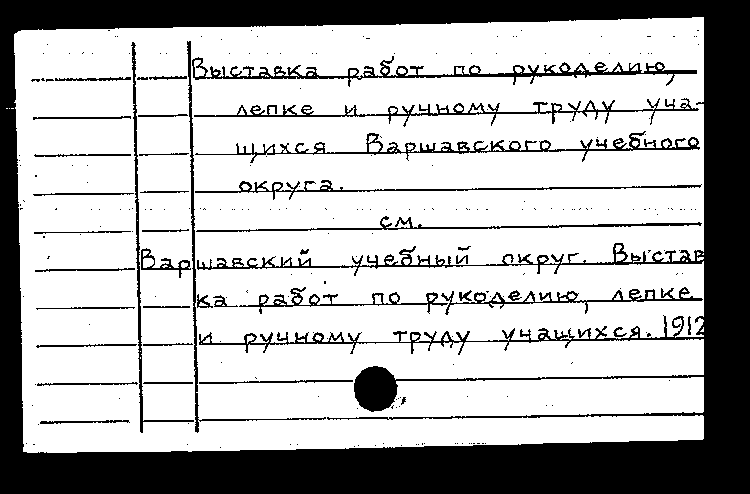 Выставка работ по рукоделию,
лепке и ручному труду уча-
щихся Варшавского учебного
округа.
см.
Варшавский учебный округ. Выстав
ка работ по рукоделию, лепке
и ручному труду учащихся. 1912